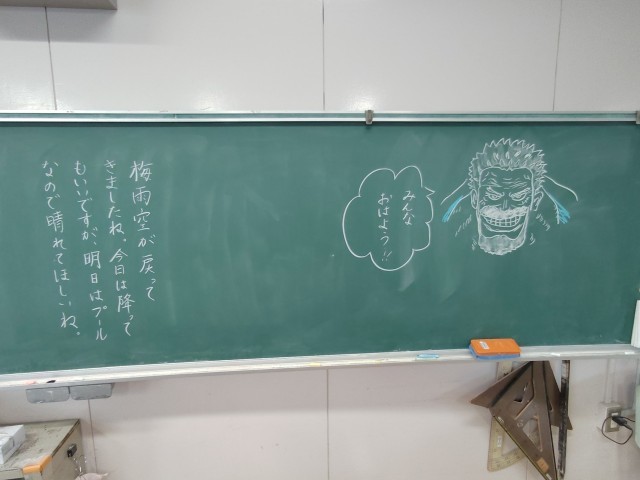 梅雨空が戻って
きましたね。今日は降って
もいいですが、明日はプール
なので晴れてほしいね。
みんな
おはよう!!